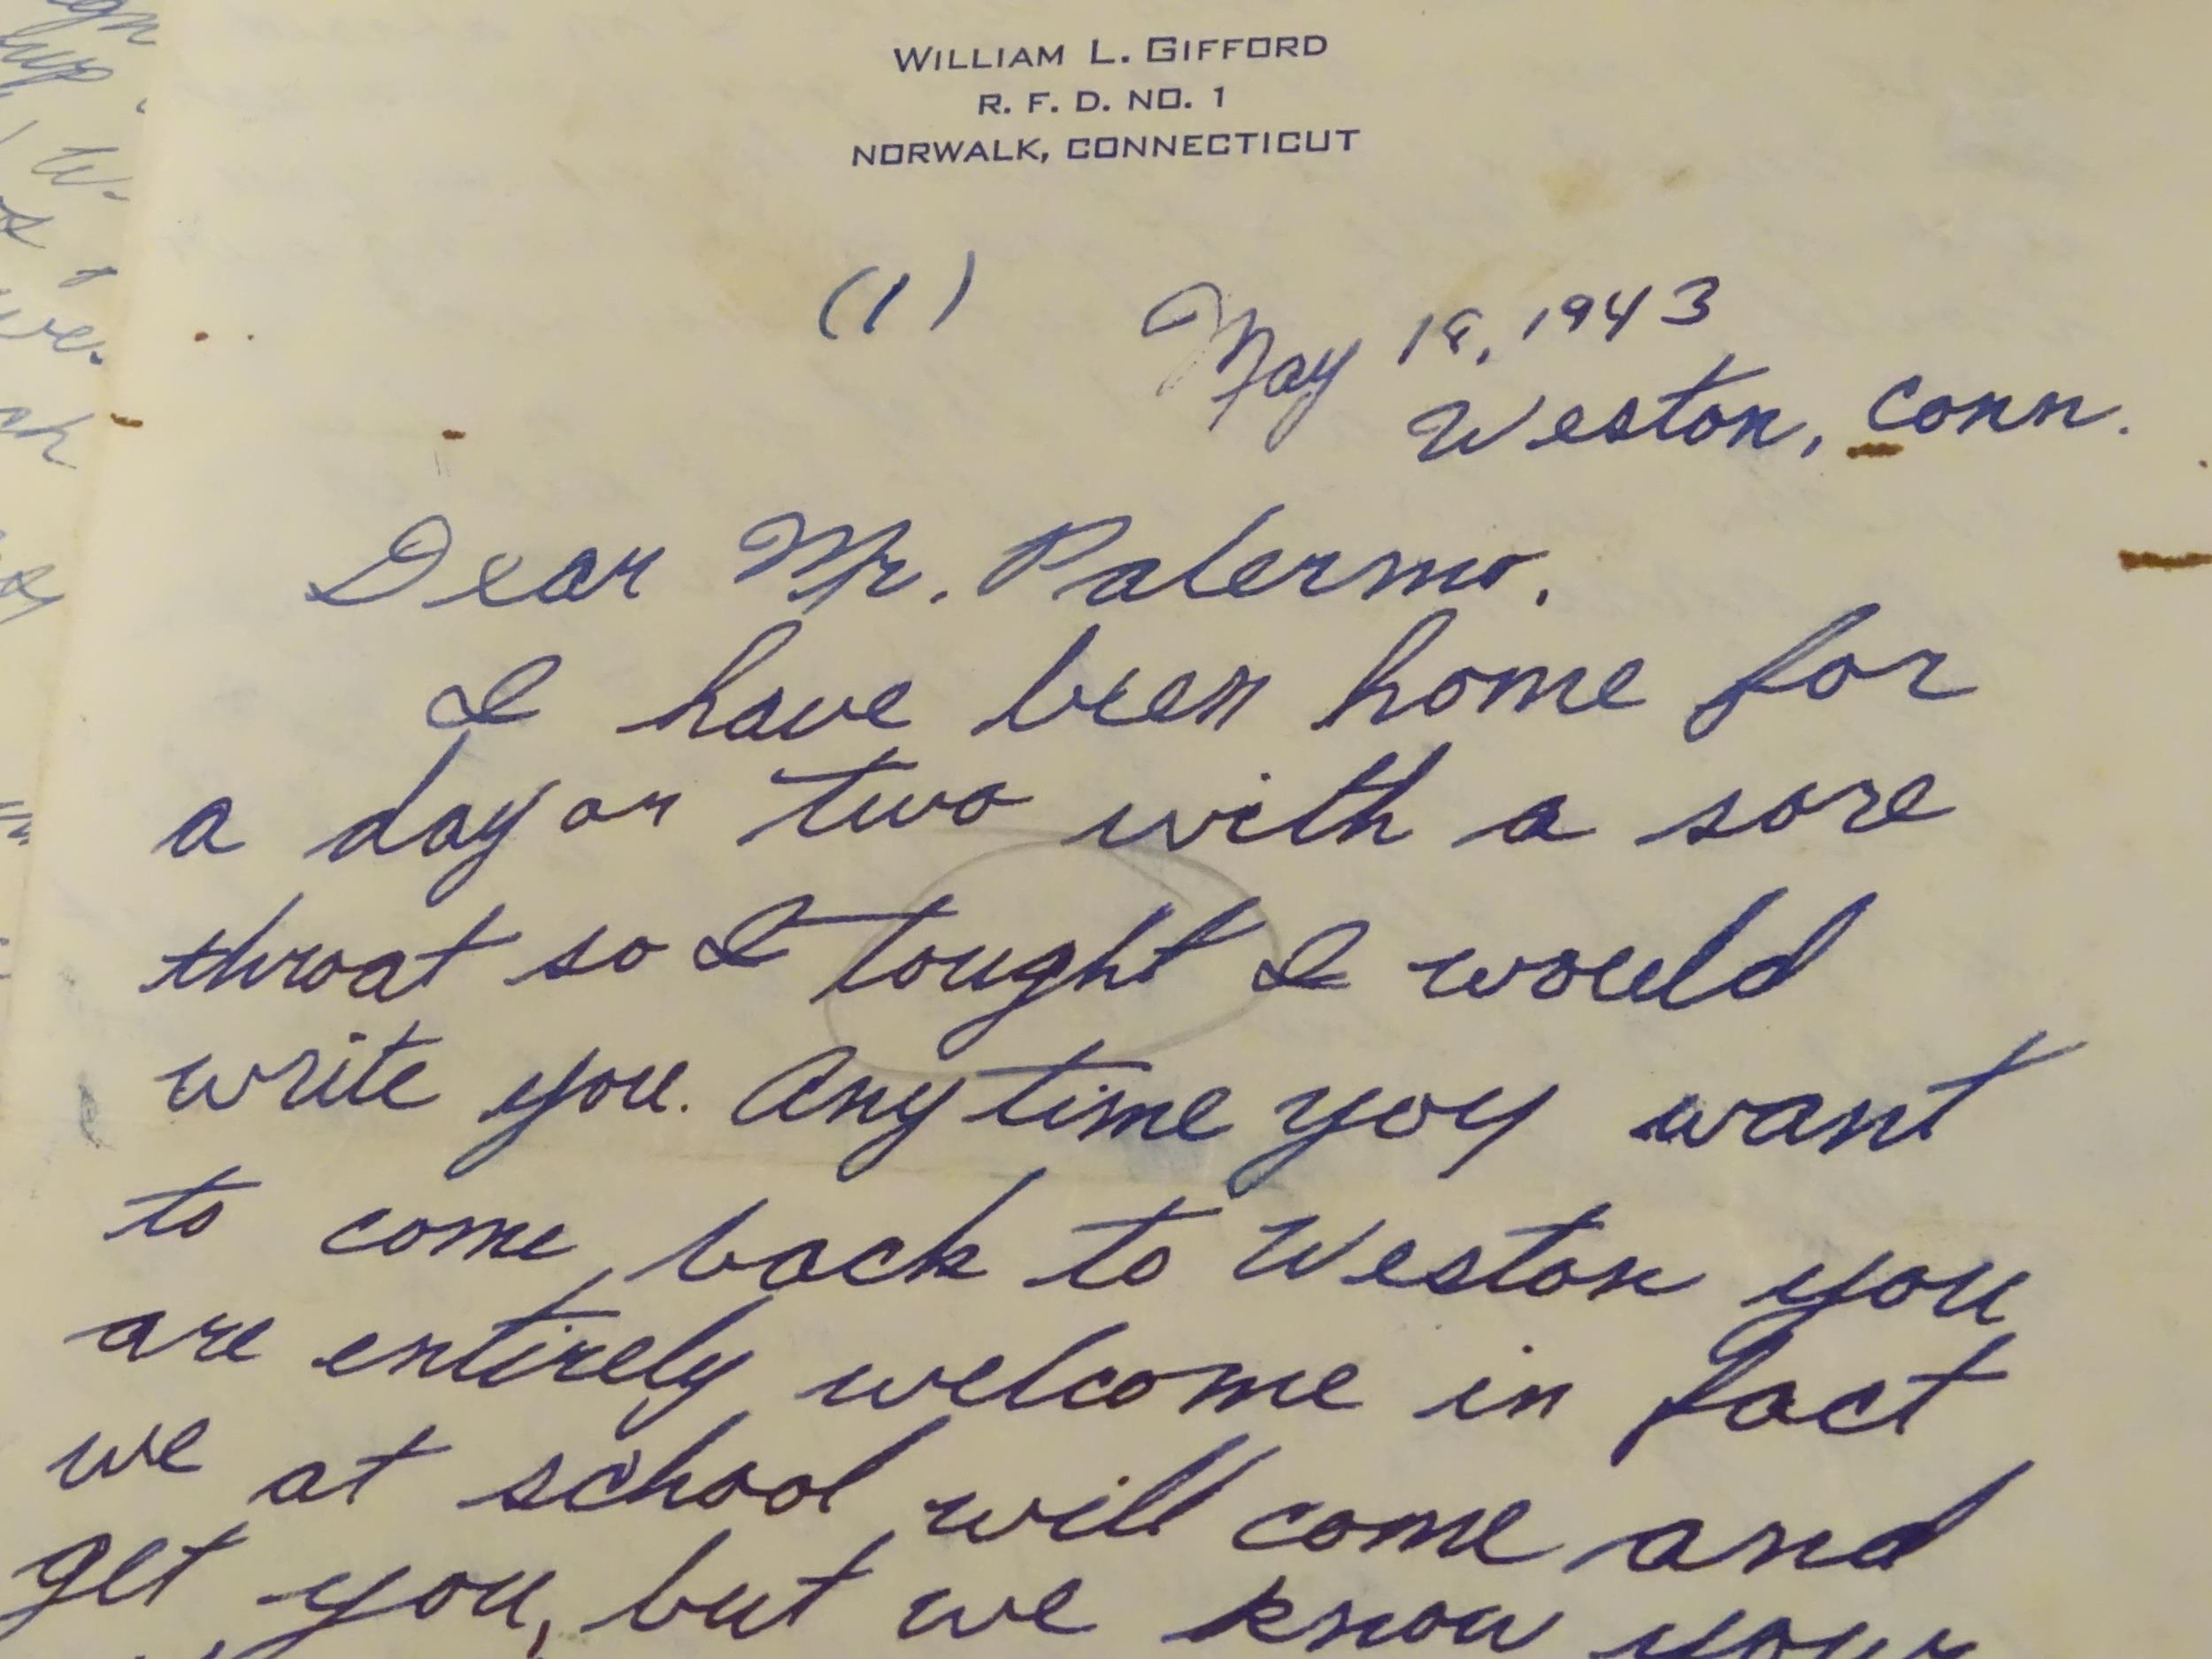 WILLIAM L. GIFFORD
R. F. D. NO. 1
NORWALK, CONNECTICUT
(1)
May 18, 1943
Weston, Conn.
Dear Mr. Palermo.
I have been home for
a day or two with a sore
throat so I tought I would
write you. Anytime you want
to come back to Weston you
are entirely welcome in fact
we at school will come and
get you, but we know your